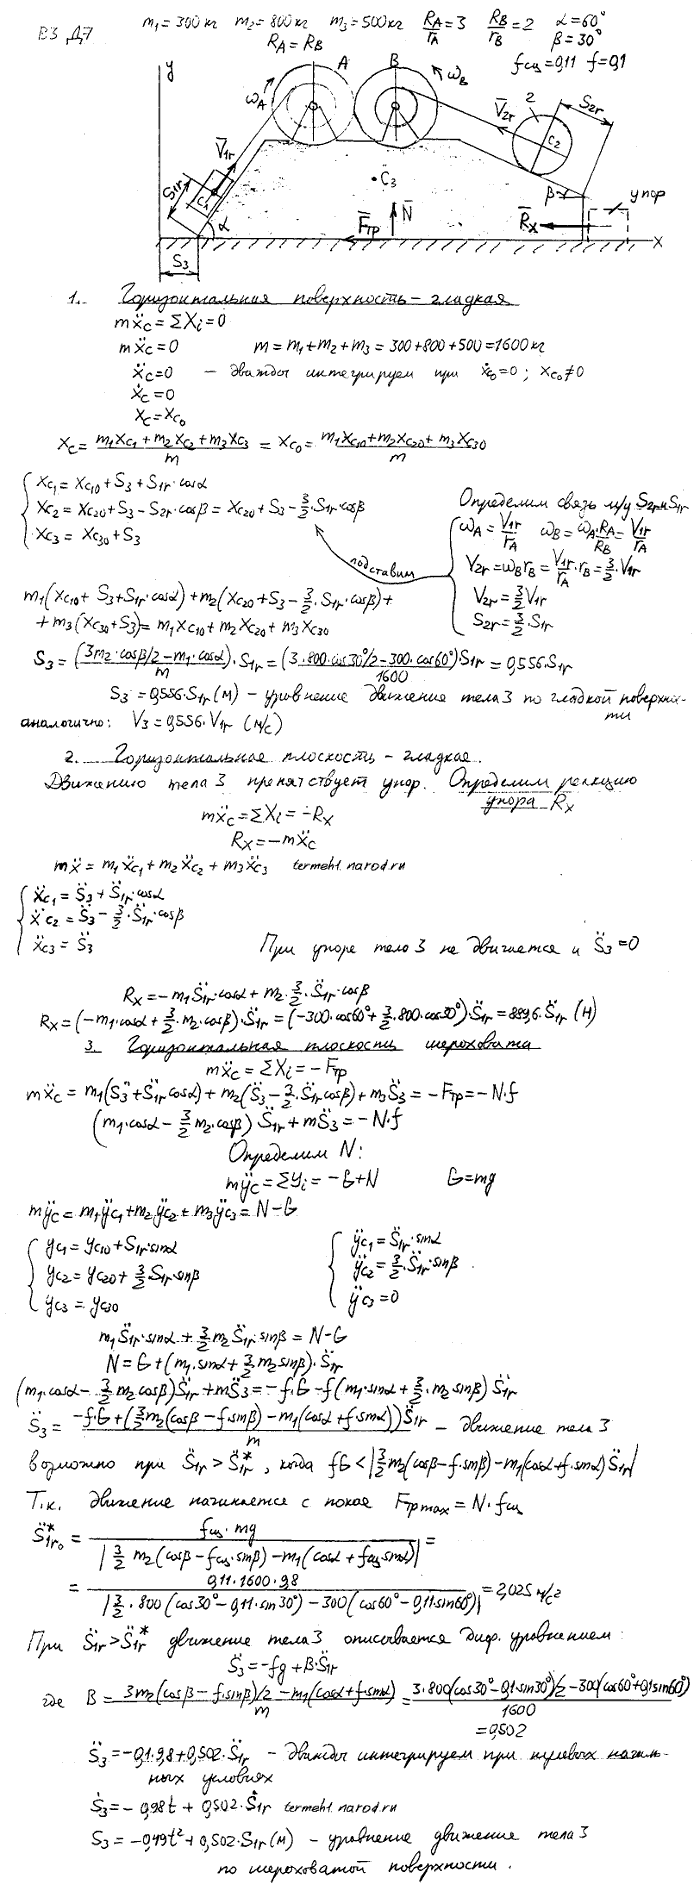 В3 Д7
m₁=300кг m₂=800кг m₃=500кг R_A/r_A=3 R_B/r_B=2 α=60°
R_A=R_B β=30°
f_сц=0,11 f=0,1
y A B ω_A ω_B V̄₂r 2 S₂r
V̄₁r S₁r C₁ C₂ C₃ α β упор
F̄тр N̄ R̄x x
S₃
1. Горизонтальная поверхность - гладкая
mẍc=ΣXi=0
mẍc=0 m=m₁+m₂+m₃=300+800+500=1600кг
ẍc=0 – дважды интегрируем при ẋc₀=0; xc₀≠0
ẋc=0
xc=xc₀
xc=(m₁xc₁+m₂xc₂+m₃xc₃)/m = xc₀=(m₁xc₁₀+m₂xc₂₀+m₃xc₃₀)/m
xc₁=xc₁₀+S₃+S₁r·cosα
xc₂=xc₂₀+S₃-S₂r·cosβ=xc₂₀+S₃-3/2·S₁r·cosβ
xc₃=xc₃₀+S₃
Определим связь м/у S₂r и S₁r
ω_A=V₁r/r_A ω_B=ω_A·R_A/R_B=V₁r/r_A
V₂r=ω_B r_B=V₁r/r_A·r_B=3/2·V₁r
V₂r=3/2V₁r
S₂r=3/2·S₁r
подставим
m₁(xc₁₀+S₃+S₁r·cosα)+m₂(xc₂₀+S₃-3/2·S₁r·cosβ)+
+m₃(xc₃₀+S₃)=m₁xc₁₀+m₂xc₂₀+m₃xc₃₀
S₃=(3m₂·cosβ/2-m₁·cosα)/m·S₁r=(3·800·cos30°/2-300·cos60°)/1600·S₁r=0,556·S₁r
S₃=0,556·S₁r(м) – уравнение движение тела 3 по гладкой поверхности
аналогично: V₃=0,556·V₁r (м/с)
2. Горизонтальное плоскость - гладкая.
Движению тела 3 препятствует упор. Определим реакцию
упора Rx
mẍc=ΣXi=-Rx
Rx=-mẍc
mẍ=m₁ẍc₁+m₂ẍc₂+m₃ẍc₃ termeh1.narod.ru
ẍc₁=S̈₃+S̈₁r·cosα
ẍc₂=S̈₃-3/2·S̈₁r·cosβ
ẍc₃=S̈₃ При упоре тело 3 не двигается и S̈₃=0
Rx=-m₁S̈₁r·cosα+m₂·3/2·S̈₁r·cosβ
Rx=(-m₁·cosα+3/2·m₂·cosβ)·S̈₁r=(-300·cos60°+3/2·800·cos30°)·S̈₁r=889,6·S̈₁r (Н)
3. Горизонтальная плоскость шероховата
mẍc=ΣXi=-Fтр
mẍc=m₁(S̈₃+S̈₁r cosα)+m₂(S̈₃-3/2·S̈₁r cosβ)+m₃S̈₃=-Fтр=-N·f
(m₁·cosα-3/2m₂·cosβ)S̈₁r+mS̈₃=-N·f
Определим N:
mÿc=ΣYi=-G+N G=mg
mÿc=m₁ÿc₁+m₂ÿc₂+m₃ÿc₃=N-G
yc₁=yc₁₀+S₁r·sinα ÿc₁=S̈₁r·sinα
yc₂=yc₂₀+3/2S₁r·sinβ ÿc₂=3/2·S̈₁r·sinβ
yc₃=yc₃₀ ÿc₃=0
m₁S̈₁r·sinα+3/2m₂S̈₁r·sinβ=N-G
N=G+(m₁·sinα+3/2m₂sinβ)·S̈₁r
(m₁·cosα-3/2m₂cosβ)S̈₁r+mS̈₃=-f·G-f(m₁·sinα+3/2·m₂sinβ)S̈₁r
S̈₃=(-f·G+(3/2m₂(cosβ-f·sinβ)-m₁(cosα+f·sinα))S̈₁r)/m – движение тела 3
возможно при S̈₁r>S̈₁r*, когда fG<|3/2m₂(cosβ-f·sinβ)-m₁(cosα+f·sinα)S̈₁r|
Т.к. движение начинается с покоя Fтр max=N·fсц
S̈₁r₀*=fсц·mg/|3/2 m₂(cosβ-fсц·sinβ)-m₁(cosα+fсц sinα)|=
=0,11·1600·9,8/|3/2·800(cos30°-0,11·sin30°)-300(cos60°-0,11sin60°)|=2,025 м/с²
При S̈₁r>S̈₁r* движение тела 3 описывается диф. уравнением:
S̈₃=-fg+B·S̈₁r
где B=(3m₂(cosβ-f·sinβ)/2-m₁(cosα+f·sinα))/m=(3·800(cos30°-0,1·sin30°)/2-300(cos60°+0,1sin60°))/1600
=0,502
S̈₃=-0,1·9,8+0,502·S̈₁r – дважды интегрируем при нулевых начальных условиях
Ṡ₃=-0,98t+0,502·Ṡ₁r termeh1.narod.ru
S₃=-0,49t²+0,502·S₁r(м) – уравнение движение тела 3
по шероховатой поверхности.